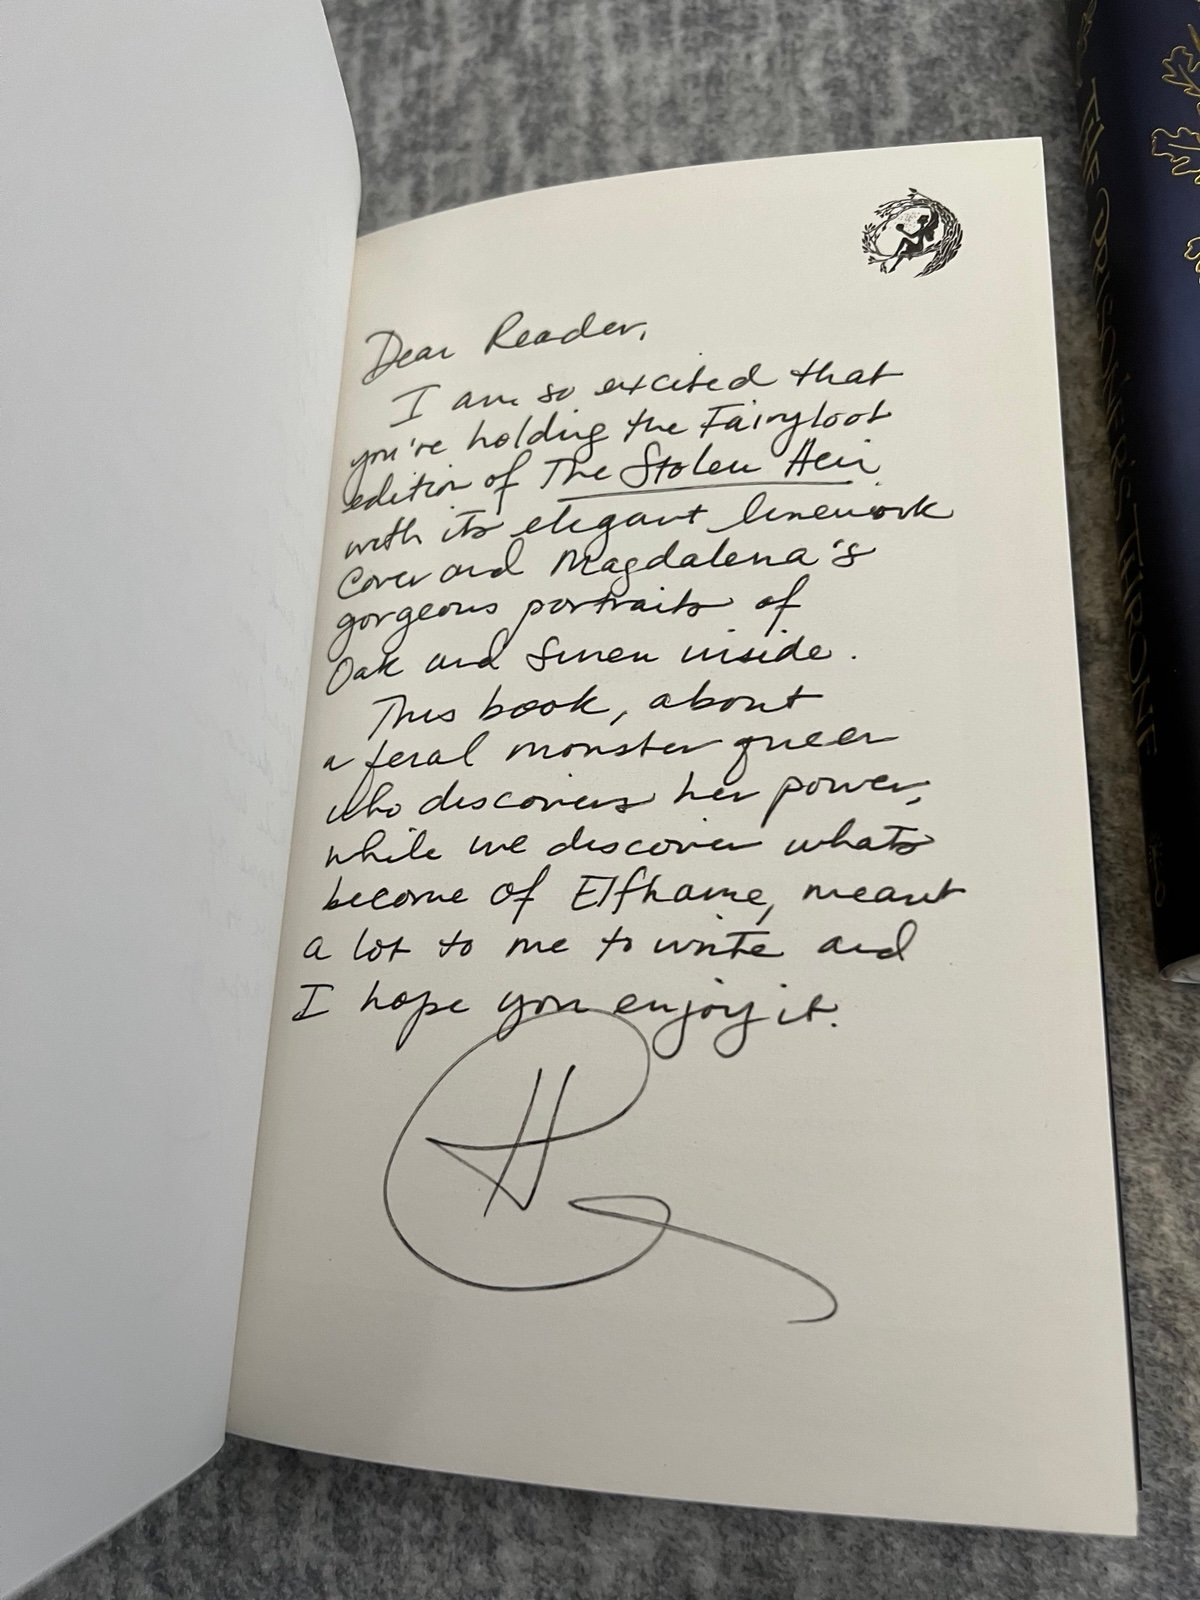 Dear Reader,
I am so excited that
you're holding the Fairyloot
edition of The Stolen Heir
with its elegant linework
Cover and Magdalena's
gorgeous portraits of
Oak and Suren inside.
This book, about
a feral monster queen
who discovers her power,
while we discover whats
become of Elfhame, meant
a lot to me to write and
I hope you enjoy it.
H
THE PRISONER'S THRONE